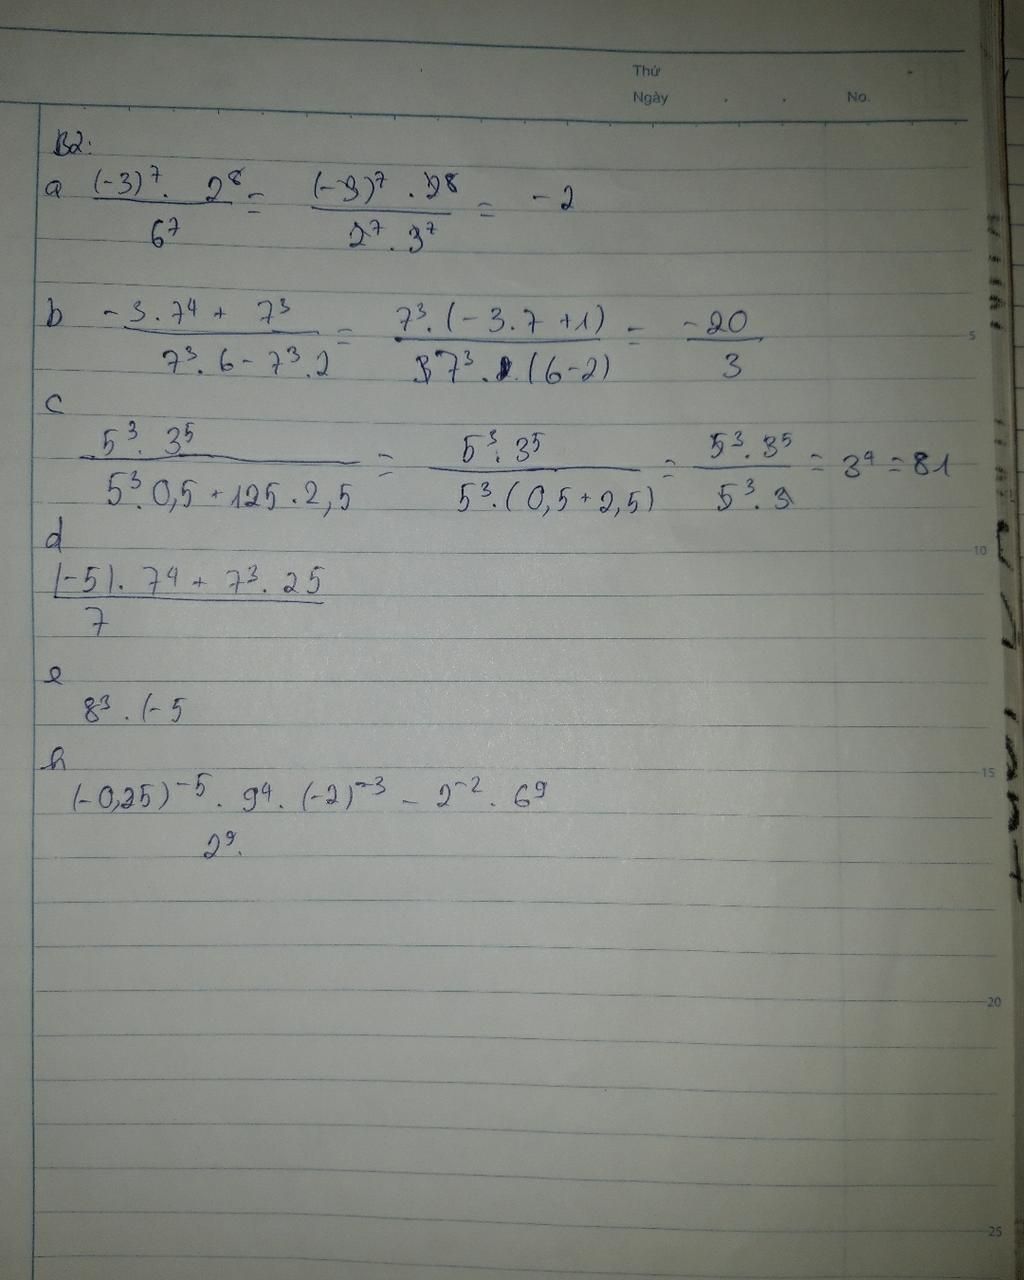 Thứ
Ngày . . No.
B2:
a (-3)⁷ . 2⁸ / 6⁷ = (-3)⁷ . 2⁸ / 2⁷ . 3⁷ = -2
b -3.7⁴ + 7³ / 7³.6 - 7³.2 = 7³.(-3.7+1) / 7³.(6-2) = -20 / 3
c
5³. 3⁵ / 5³.0,5 + 125.2,5 = 5³.3⁵ / 5³.(0,5+2,5) = 5³.3⁵ / 5³.3 = 3⁴ = 81
d
(-5).7⁴ + 7³.25 / 7
e
8³.(-5
h
(-0,25)⁻⁵ . 9⁴. (-2)⁻³ - 2⁻² . 6⁹
2⁹.
5
10
15
20
25